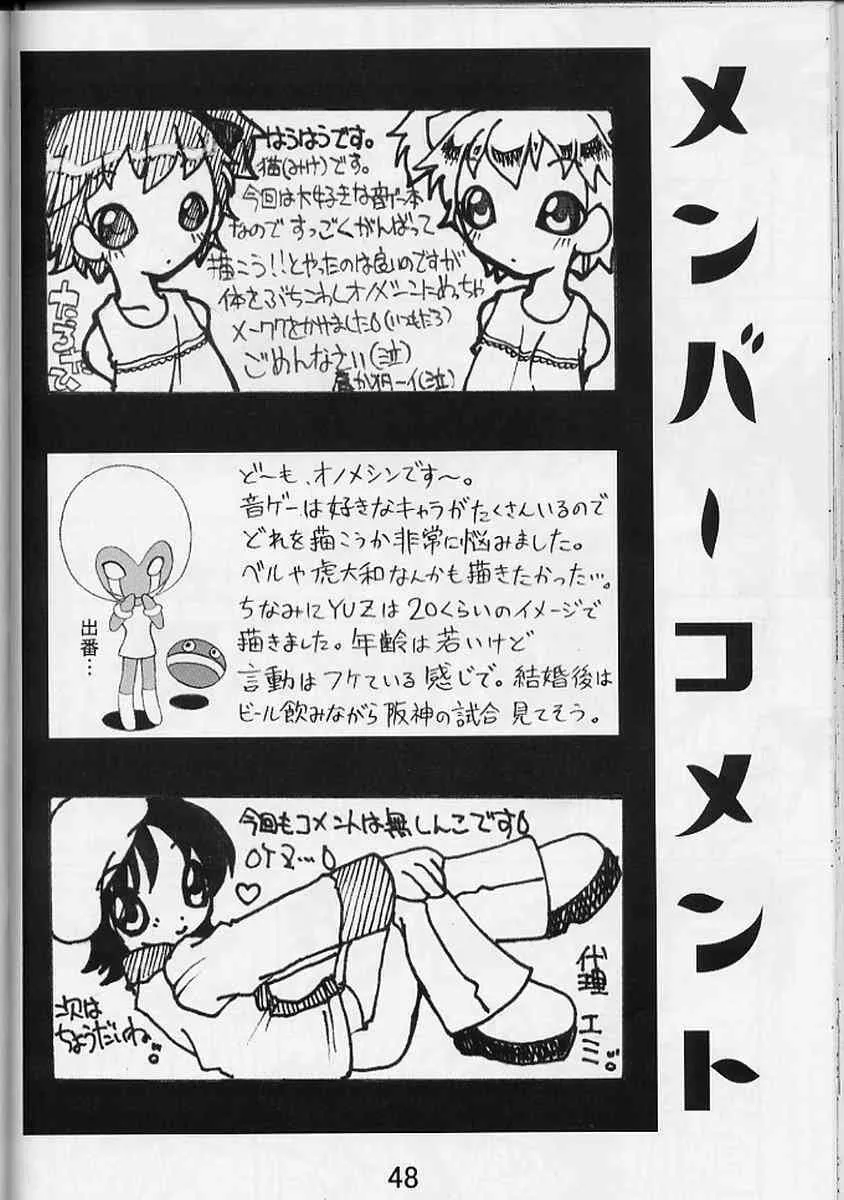 メンバーコメント
はうはうです。
猫(みけ)です。
今回は大好きな音ゲー本
なので すっごくがんばって
描こう!!とやったのは良いのですが
体をぶちこわしオノメシンにめっちゃ
メーワクをかけました(いつもだろ)
ごめんなさい(泣)
ど〜も、オノメシンです〜。
音ゲーは好きなキャラがたくさんいるので
どれを描こうか非常に悩みました。
ベルや虎大和なんかも描きたかった…。
ちなみにYUZは20くらいのイメージで
描きました。年齢は若いけど
言動はフケている感じで。結婚後は
ビール飲みながら阪神の試合見てそう。
出番…
今回もコメントは無しんこです
代理 エミ
次は
ちょうだいね
48